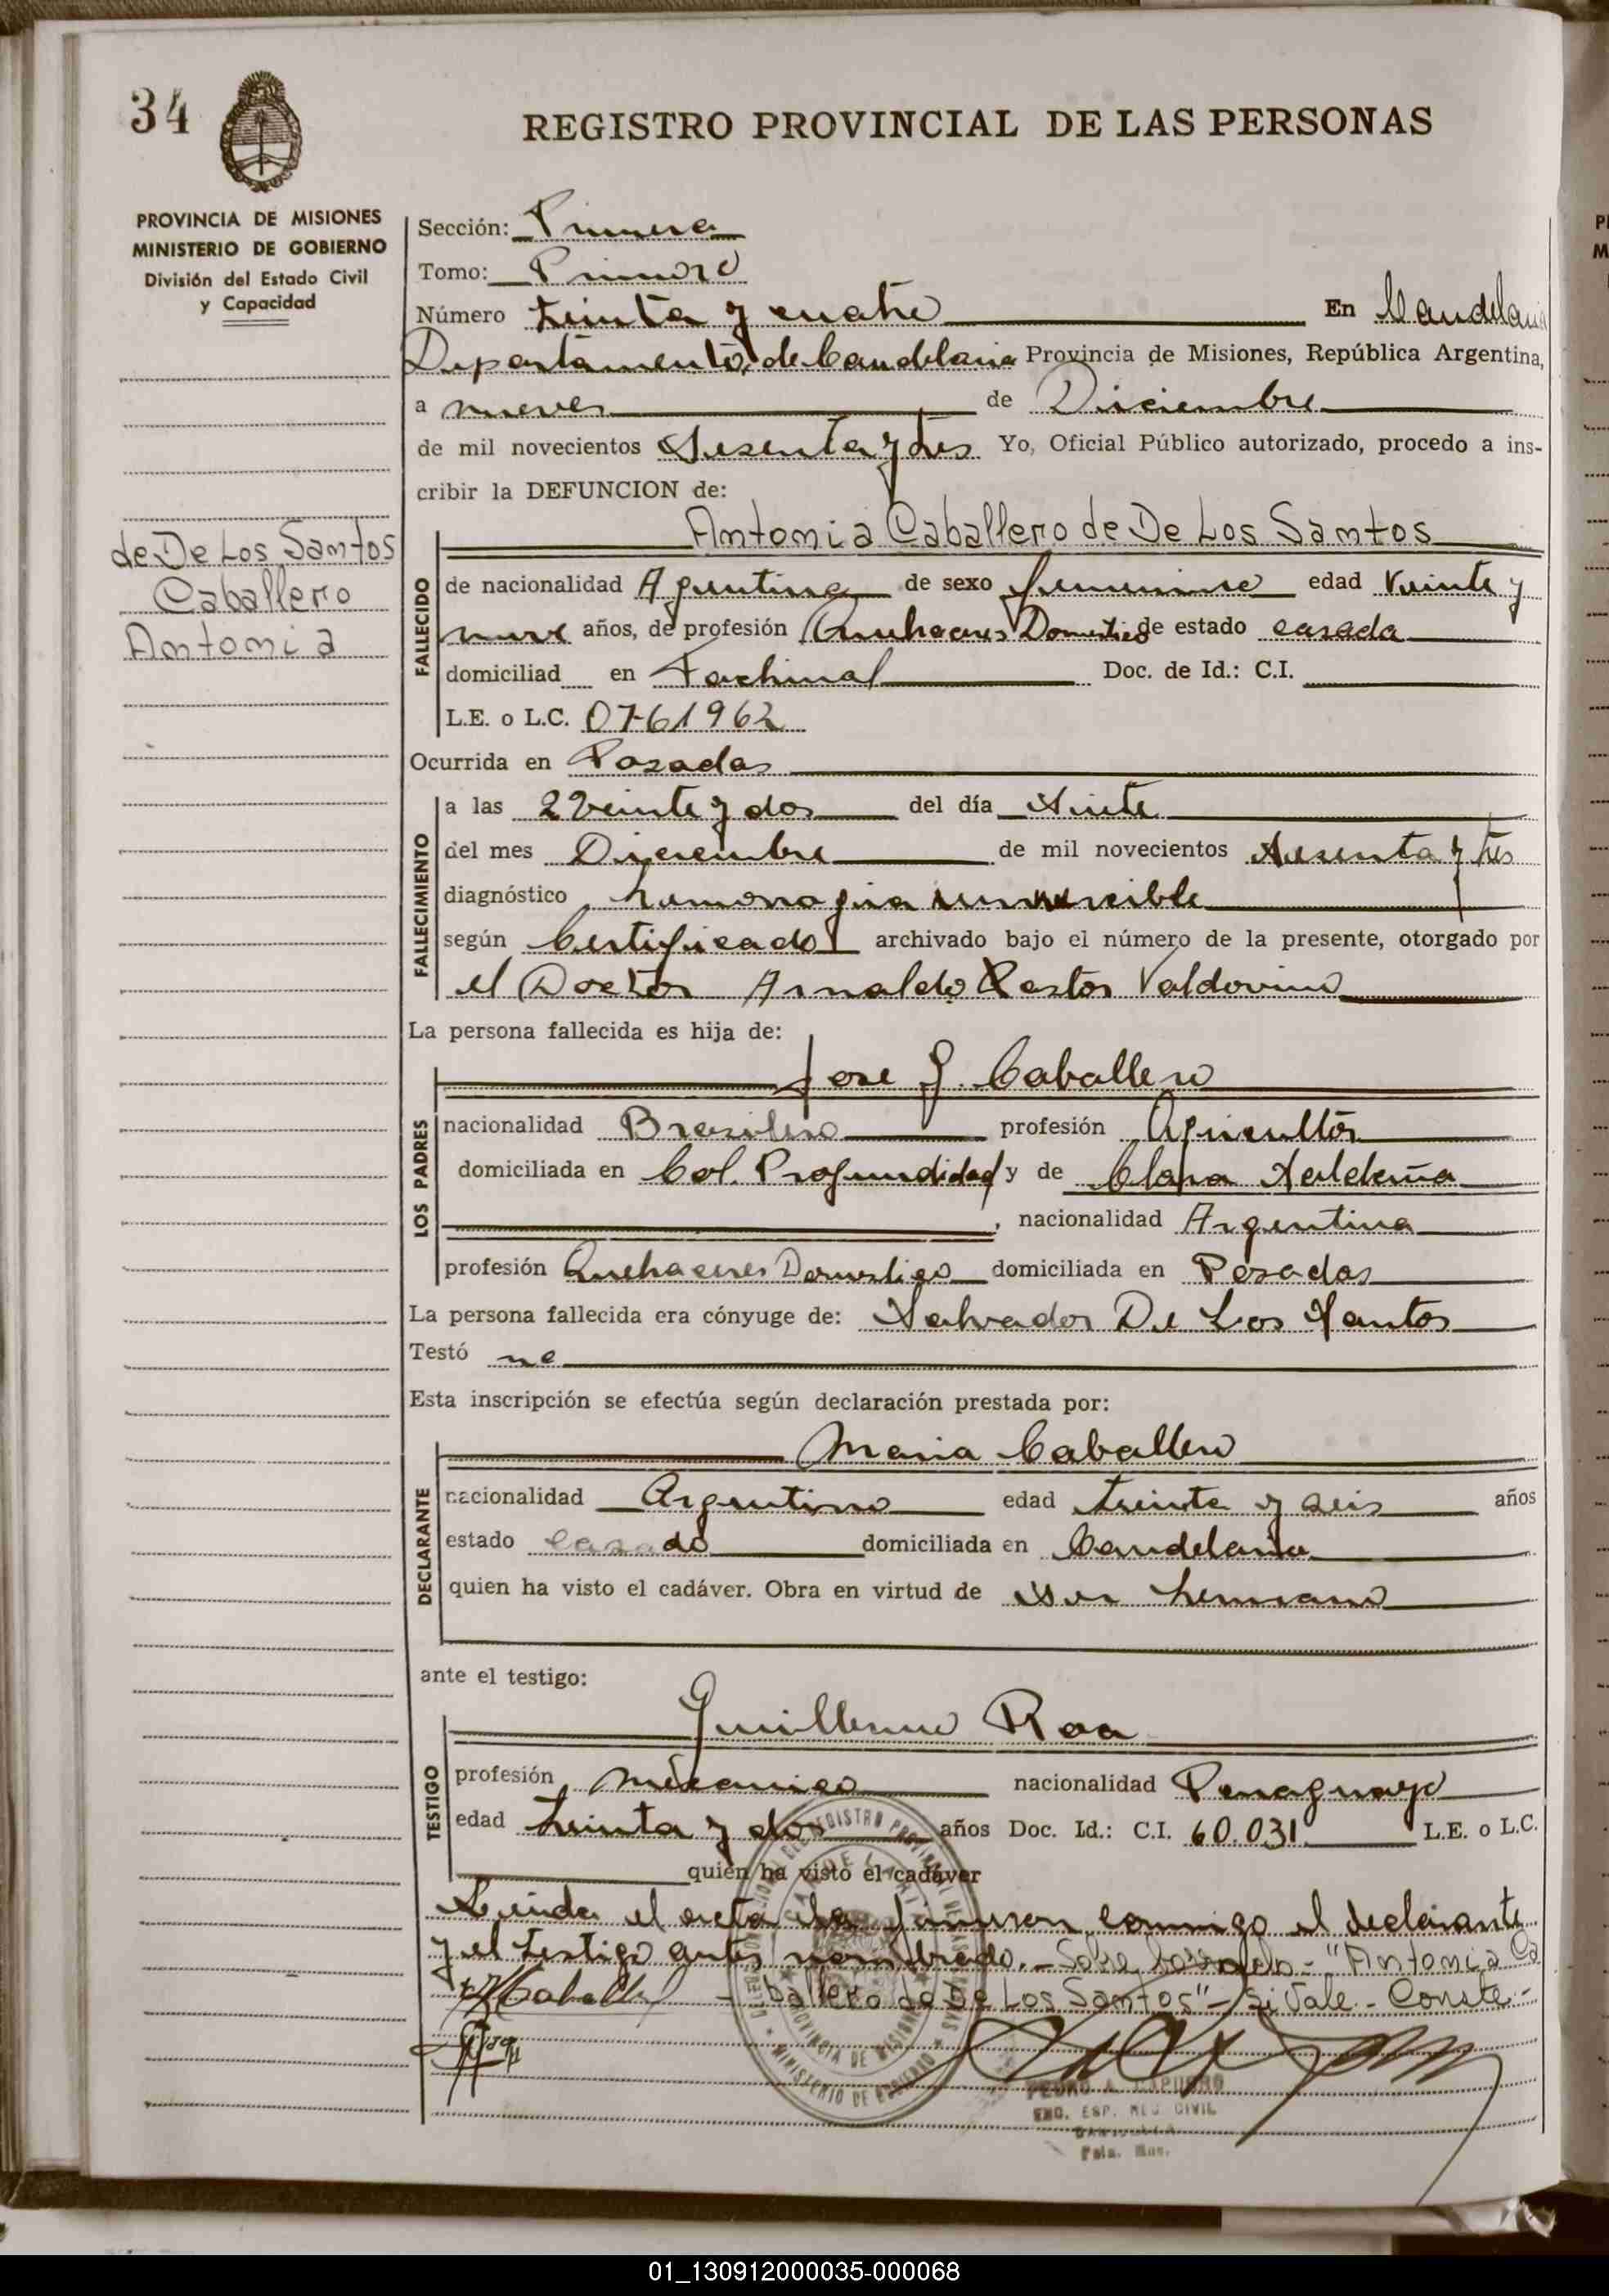 34
REGISTRO PROVINCIAL DE LAS PERSONAS
PROVINCIA DE MISIONES
MINISTERIO DE GOBIERNO
División del Estado Civil
y Capacidad
Sección: Primera
Tomo: Primero
Número treinta y cuatro En Candelaria
Departamento de Candelaria Provincia de Misiones, República Argentina,
a nueve de Diciembre
de mil novecientos Sesenta y tres Yo, Oficial Público autorizado, procedo a ins-
cribir la DEFUNCION de:
de De Los Santos
Caballero
Antonia
FALLECIDO
Antonia Caballero de De Los Santos
de nacionalidad Argentina de sexo femenino edad Veinte y
nueve años, de profesión Quehaceres Domestico de estado casada
domiciliad en Fachinal Doc. de Id.: C.I.
L.E. o L.C. 0761962
Ocurrida en Posadas
FALLECIMIENTO
a las 2 Veinte y dos del día Siete
del mes Diciembre de mil novecientos Sesenta y tres
diagnóstico hemorragia
según Certificado archivado bajo el número de la presente, otorgado por
el Doctor Arnaldo Valdovino
La persona fallecida es hija de:
LOS PADRES
Jose G. Caballero
nacionalidad Brasilero profesión Agricultor
domiciliada en Col. Profundidad y de Clara
, nacionalidad Argentina
profesión Quehaceres Domestico domiciliada en Posadas
La persona fallecida era cónyuge de: Salvador De Los Santos
Testó no
Esta inscripción se efectúa según declaración prestada por:
DECLARANTE
Maria Caballero
nacionalidad Argentino edad treinta y seis años
estado casado domiciliada en Candelaria
quien ha visto el cadáver. Obra en virtud de ser hermano
ante el testigo:
TESTIGO
Guillermo Roa
profesión mecanico nacionalidad Paraguayo
edad treinta y dos años Doc. Id.: C.I. 60.031 L.E. o L.C.
quien ha visto el cadáver
Leida el acta la firman conmigo el declarante
y el testigo antes nombrado.- Sobre borrado - "Antonia Ca
Caballero - ballero de De Los Santos" - Si Vale - Conste -
PROVINCIA DE MISIONES
MINISTERIO DE GOBIERNO
PEDRO A.
ENC. ESP. REG CIVIL
01_130912000035-000068